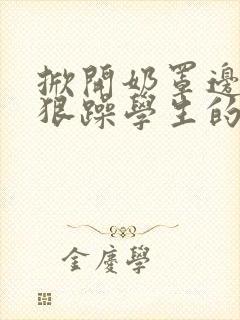 掀開奶罩邊
狠躁學生的
金慶學